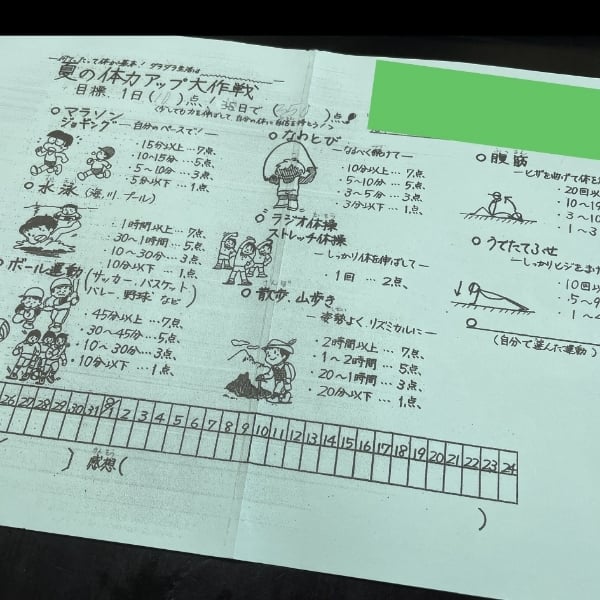 夏の体力アップ大作戦
目標、1日(　)点、！38日で(　)点、！
○マラソン
ジョギング
―自分のペースで！―
・15分以上…7点、
・10〜15分…5点、
・5〜10分…3点、
・5分以下…1点、
○水泳(海、川、プール)
・1時間以上…7点、
・30〜1時間…5点、
・10〜30分…3点、
・10分以下…1点、
○ボール運動(サッカー、バスケット
バレー、野球 など)
・45分以上…7点、
・30〜45分…5点、
・10〜30分…3点、
・10分以下…1点、
○なわとび
―なるべく続けて―
・10分以上…7点、
・5〜10分…5点、
・3〜5分…3点、
・3分以下…1点、
○ラジオ体操
ストレッチ体操
―しっかり体を伸ばして―
・1回…2点、
○散歩、山歩き
―姿勢よく、リズミカルに―
・2時間以上…7点、
・1〜2時間…5点、
・20〜1時間…3点、
・20分以下…1点、
○腹筋
―ヒザを曲げて体を
・20回以
・10〜19
・3〜10
・1〜3
○うでたてふせ
―しっかりヒジをまげ
・10回以
・5〜9
・1〜4
○
(自分で選んだ運動)
26 27 28 29 30 31 8/1 2 3 4 5 6 7 8 9 10 11 12 13 14 15 16 17 18 19 20 21 22 23 24
) 感想(
)